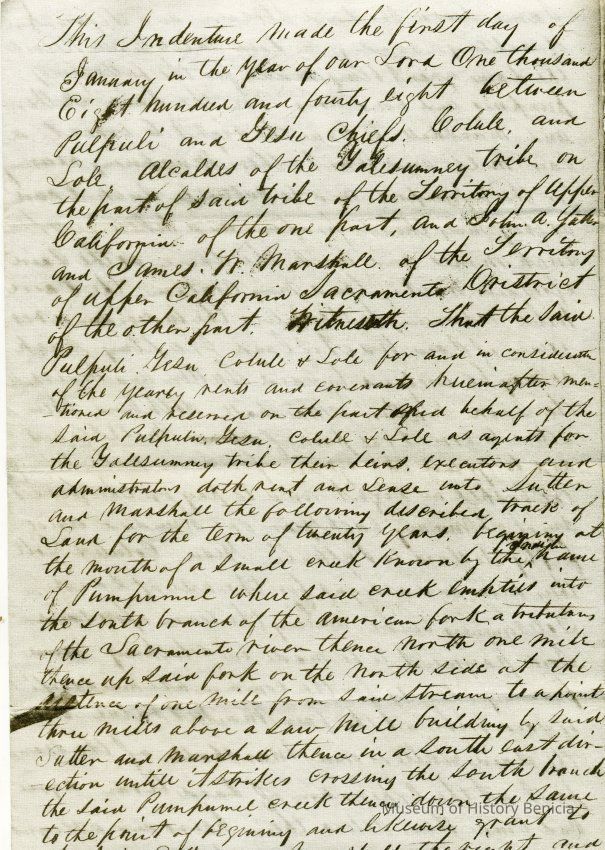 This Indenture made the first day of
January in the year of our Lord One thousand
Eight hundred and fourty eight between
Pulpuli and Gesu Chiefs. Colule, and
Lole. Alcaldes of the Yalesumney tribe on
the part of said tribe of the Territory of Upper
California of the one part, and John. A. Sutter
and James. W. Marshall. of the Territory
of Upper California Sacramento District
of the other part. Witnesseth. That the Said
Pulpuli. Gesu. Colule & Lole for and in consideration
of the yearly rents and covenants hereinafter men-
-tioned and reserved on the part and behalf of the
said Pulpuli, Gesu. Colule & Lole as agents for
the Yalesumney tribe their heirs. executors and
administrators doth rent and Lease unto Sutter
and Marshall the following described track of
Land for the term of twenty years. begining at
the mouth of a small creek known by the indian name
of Pumpumul where said creek empties into
the south branch of the american fork a tributary
of the Sacramento river thence North one mile
thence up said fork on the North side at the
distence of one mile from said stream to a point
three miles above a saw mill building by said
Sutter and Marshall thence in a south east dir-
ection untill it strikes crossing the south branch
the said Pumpumul creek thence down the same
to the point of begining and likewise grant to
the right and
Museum of History Benicia